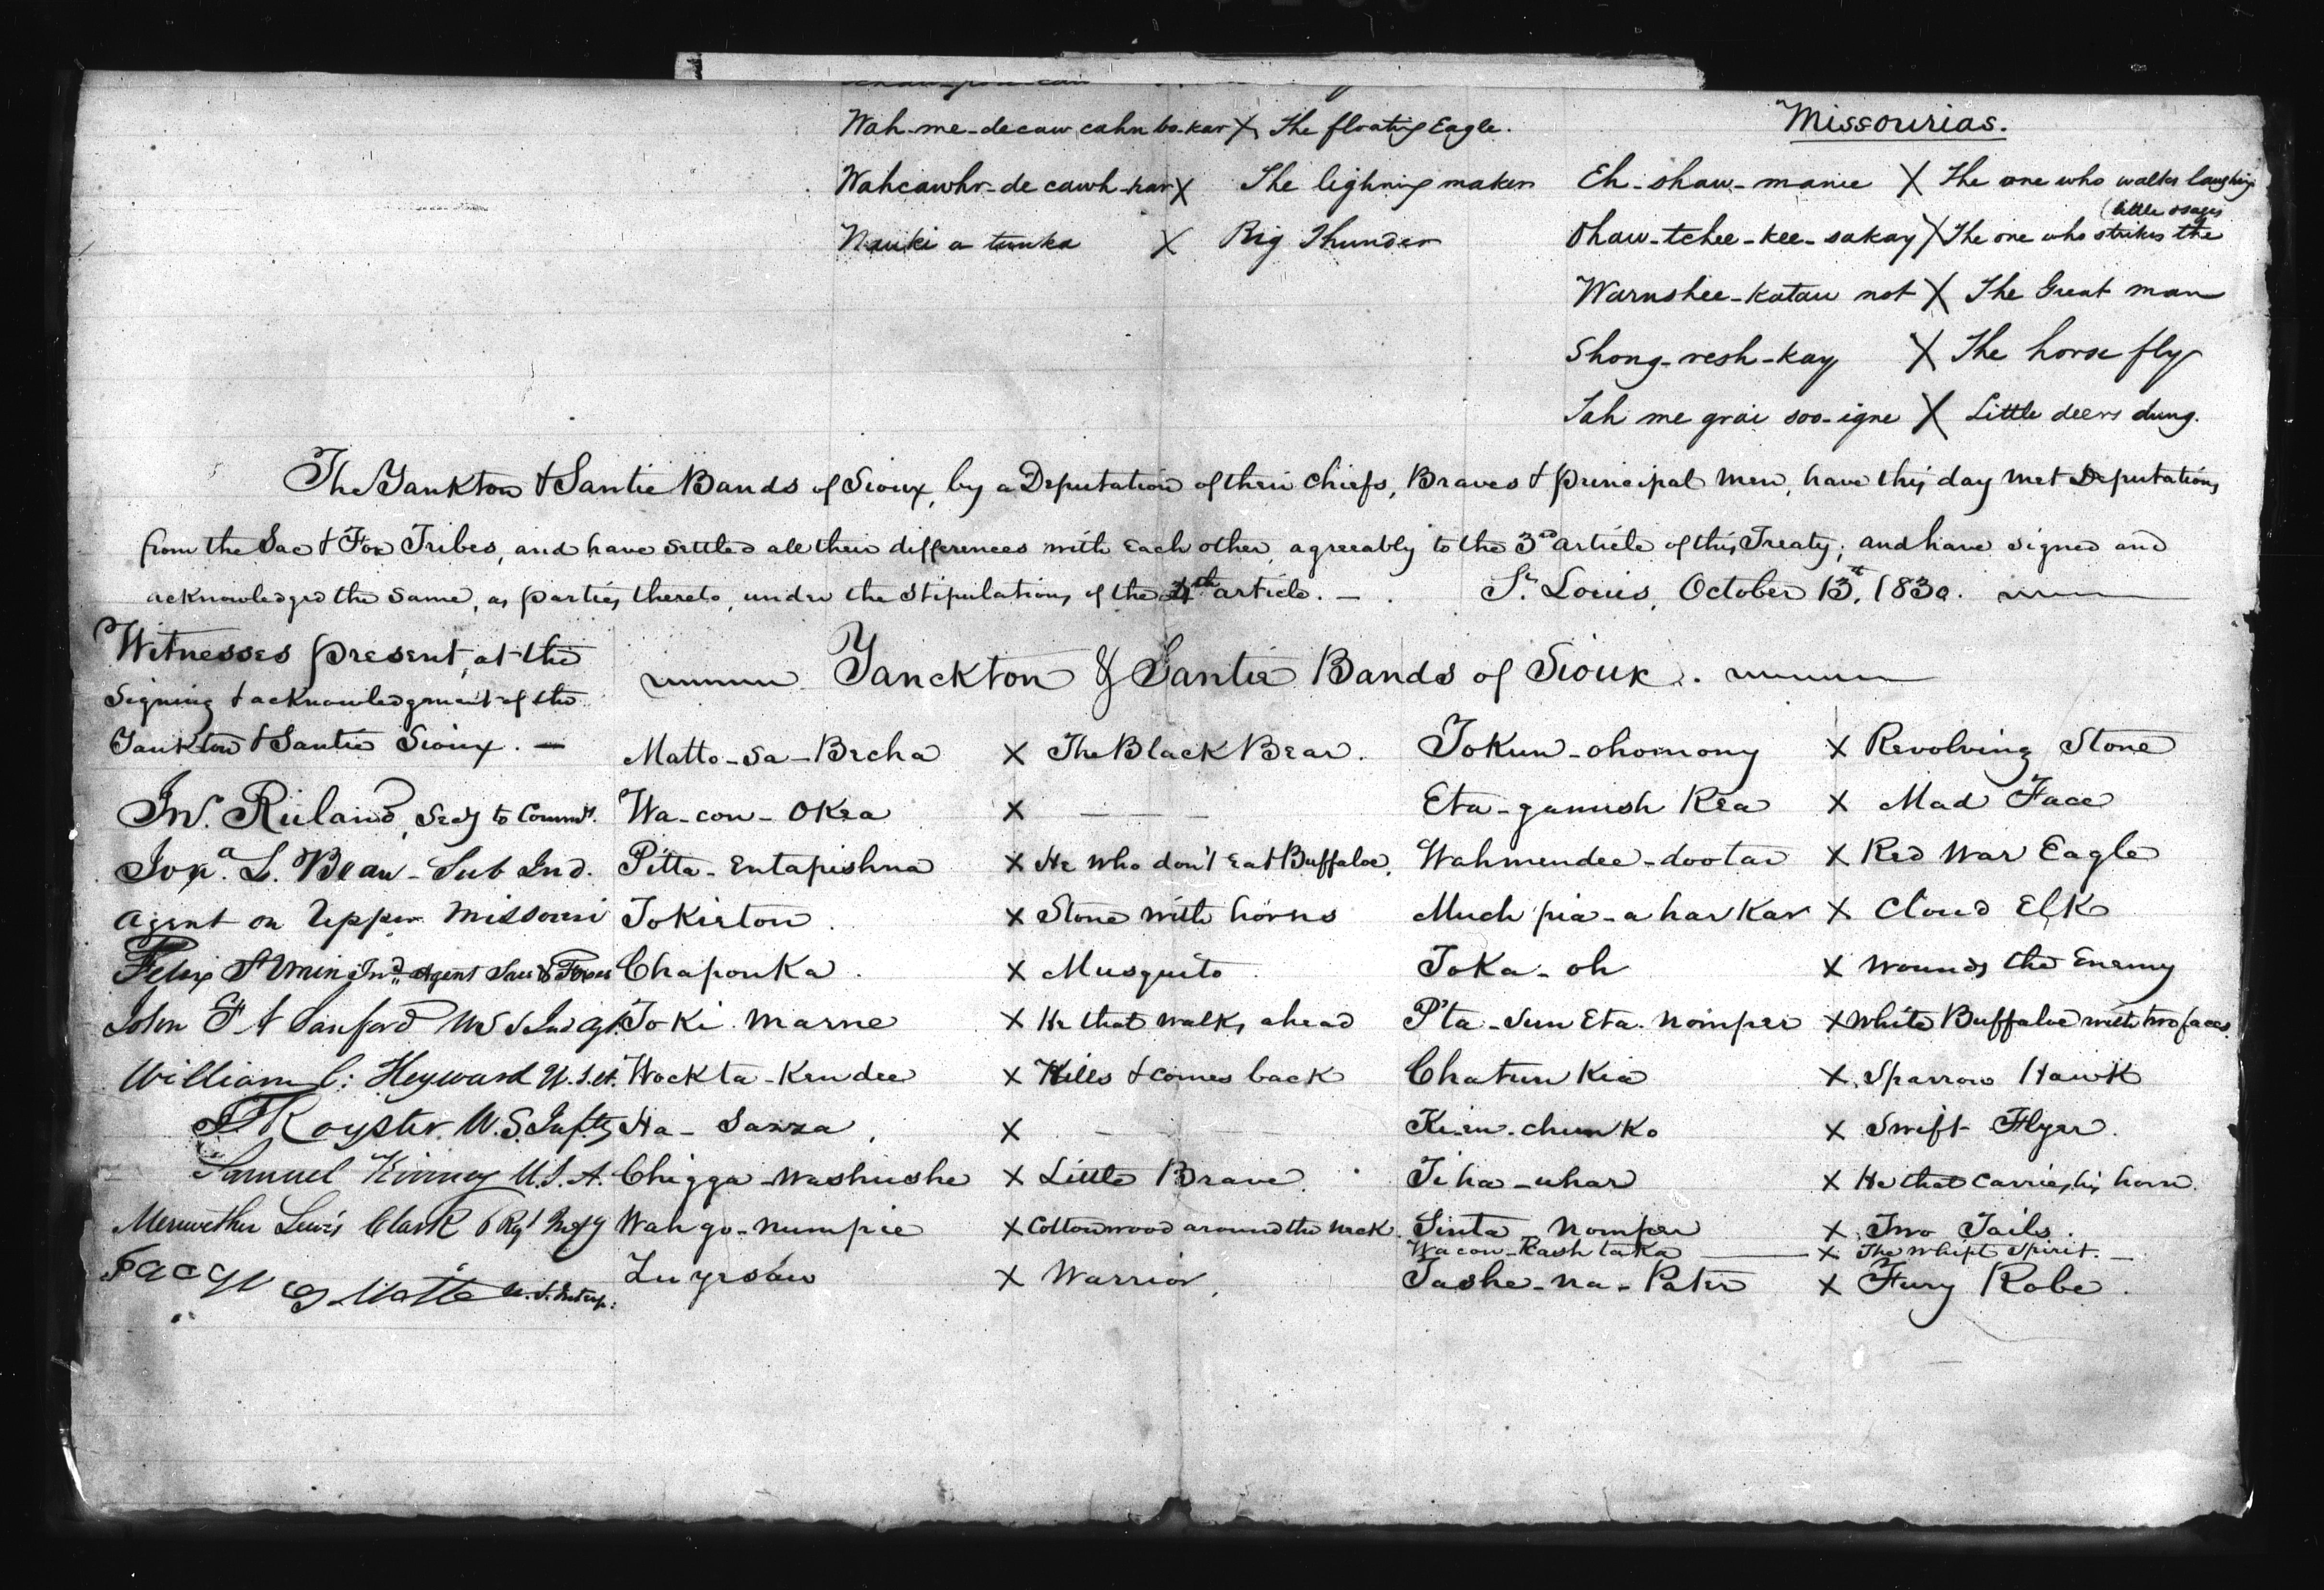 Wah-me-decaw cahn bo-kar X The floating Eagle.
Wahcawhr-de cawh-kar X The lighning maker
Nauki a tunka X Big Thunder
Missourias.
Eh-shaw-manie X The one who walks laughing
Ohaw-tchee-kee-sakay X The one who strikes the
(little osages
Warnshee-katau not X The Great man
Shong-resh-kay X The horse fly
Tah me grai soo-igne X Little deers dung.
The Yankton & Santie Bands of Sioux, by a Deputation of their Chiefs, Braves & principal men, have this day met Deputations
from the Sac & Fox Tribes, and have settled all their differences with each other, agreeably to the 3rd article of this Treaty; and have signed and
acknowledged the same, as parties thereto, under the stipulations of the 4th article. — St. Louis, October 13th, 1830.
Witnesses present, at the
signing & acknowledgment of the
Yankton & Santie Sioux. —
Jno. Ruland, Secy to Commrs.
Jona. L. Bean - Sub Ind.
Agent on Upper Missouri
Felix St Vrain Ind. Agent Sacs & Foxes
John F A Sanford US S Ind Agt.
William C: Heyward U.S.A.
Royster. U.S. Infty
Samuel Kinney U.S.A.
Meriwether Lewis Clark 6 Regt Infy
Jacques Mette U.S. Interp:
Yanckton & Santie Bands of Sioux.
Matto-Sa-Becha X The Black Bear.
Wa-con-Okea X — — —
Pitta-Entapishna X He who don't eat Buffaloe,
Tokieton. X Stone with horns
Chaponka. X Musquito.
Toki Marne X He that walks ahead
Wockta-Kendee X Kills & comes back
Ha-Sazza, X — —
Chigga-Washushe X Little Brave.
Wah go-numpie X Cottonwood around the neck.
Zuyesaw X Warrior,
Tokun-ohomony X Revolving Stone
Eta-gamush Kea X Mad Face
Wahmendee-dootar X Red War Eagle
Much pia-a har Kar X Cloud Elk
Toka-oh X Wounds the Enemy
P'ta-Sun Eta. Nomper X White Buffaloe with two faces.
Chatun Kia X Sparrow Hawk
Ke-in-chun-Ko X Swift Flyer.
Ti ha-uhar X He that carries his horn.
Sinta Nomper X Two Tails.
Wacon-Kashtaka —— X The Whipt Spirit. —
Tashe-na-Pater X Fury Robe.